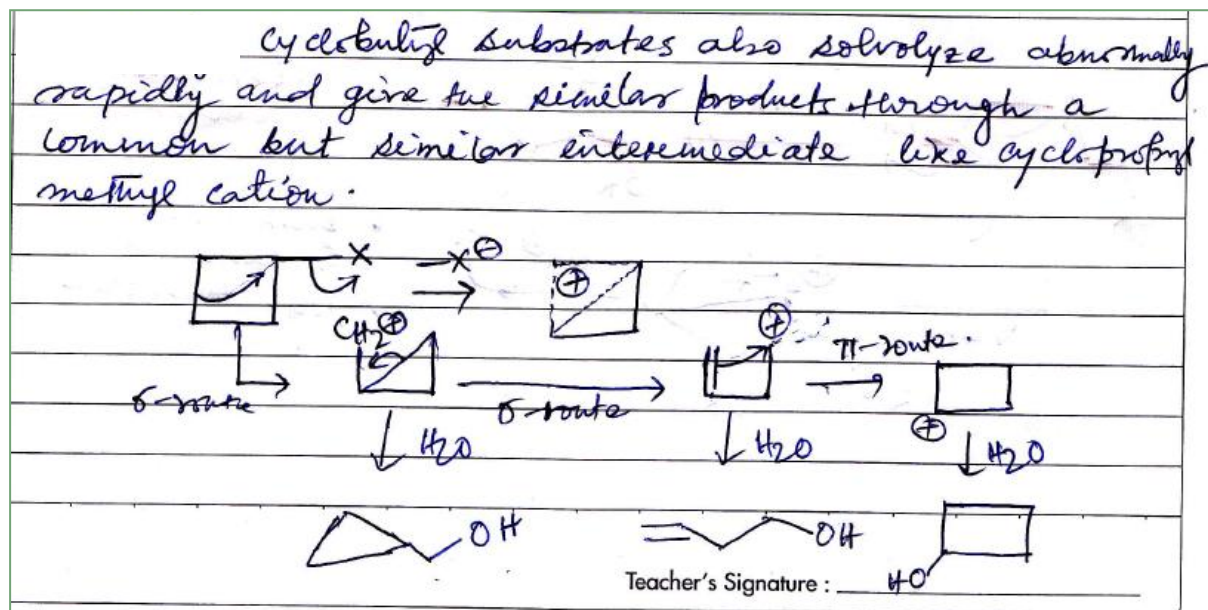 cyclobutyl substrates also solvolyze abnormally
rapidly and give the similar products through a
common but similar interemediate like cyclopropyl
methyl cation.
X –X⊖ ⊕
CH2⊕ ⊕ π-route.
σ-route σ-route ⊕
H2O H2O H2O
OH OH
Teacher's Signature : HO